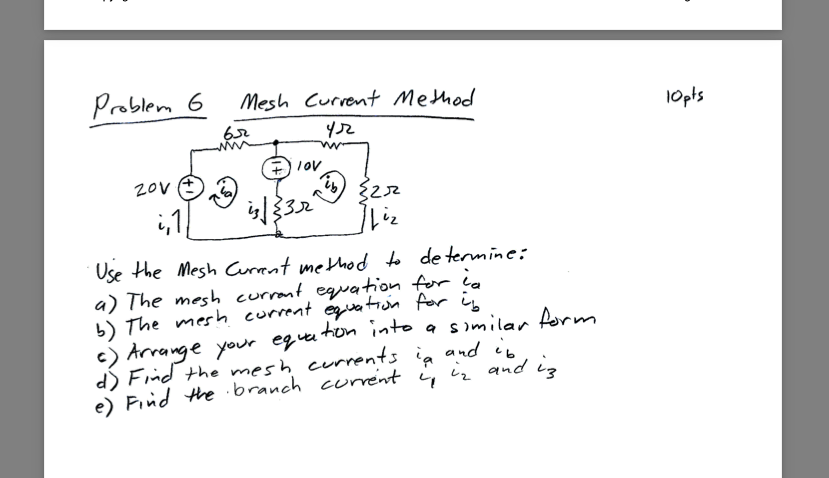 Problem 6 Mesh Current Method 10pts
6Ω 4Ω
10V
20V ia ib 2Ω
i1 i3 3Ω i2
Use the Mesh Current method to determine:
a) The mesh current equation for ia
b) The mesh current equation for ib
c) Arrange your equation into a similar form
d) Find the mesh currents ia and ib
e) Find the branch current i1 i2 and i3